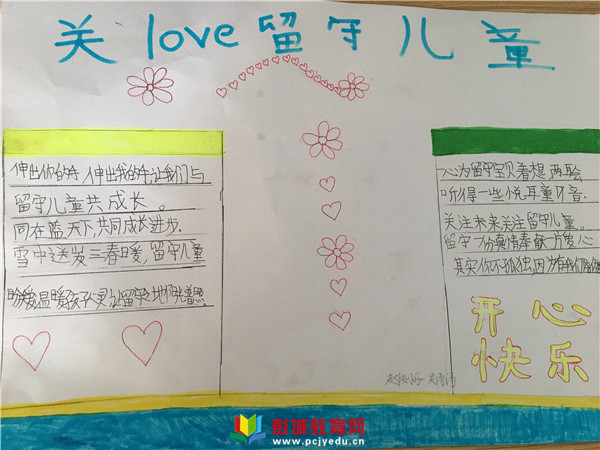 关love留守儿童
伸出你的手,伸出我的手,让我们与
留守儿童共成长。
同在蓝天下,共同成长进步.
雪中送炭三春暖,留守儿童
心为留守宝贝着想 两耳会
听得一些悦耳童牙音.
关注未来关注留守儿童。
留守一份真情奉献一片爱心
其实你不孤独,因为有我们
开心
快乐
彭城教育网
www.pcjyedu.cn